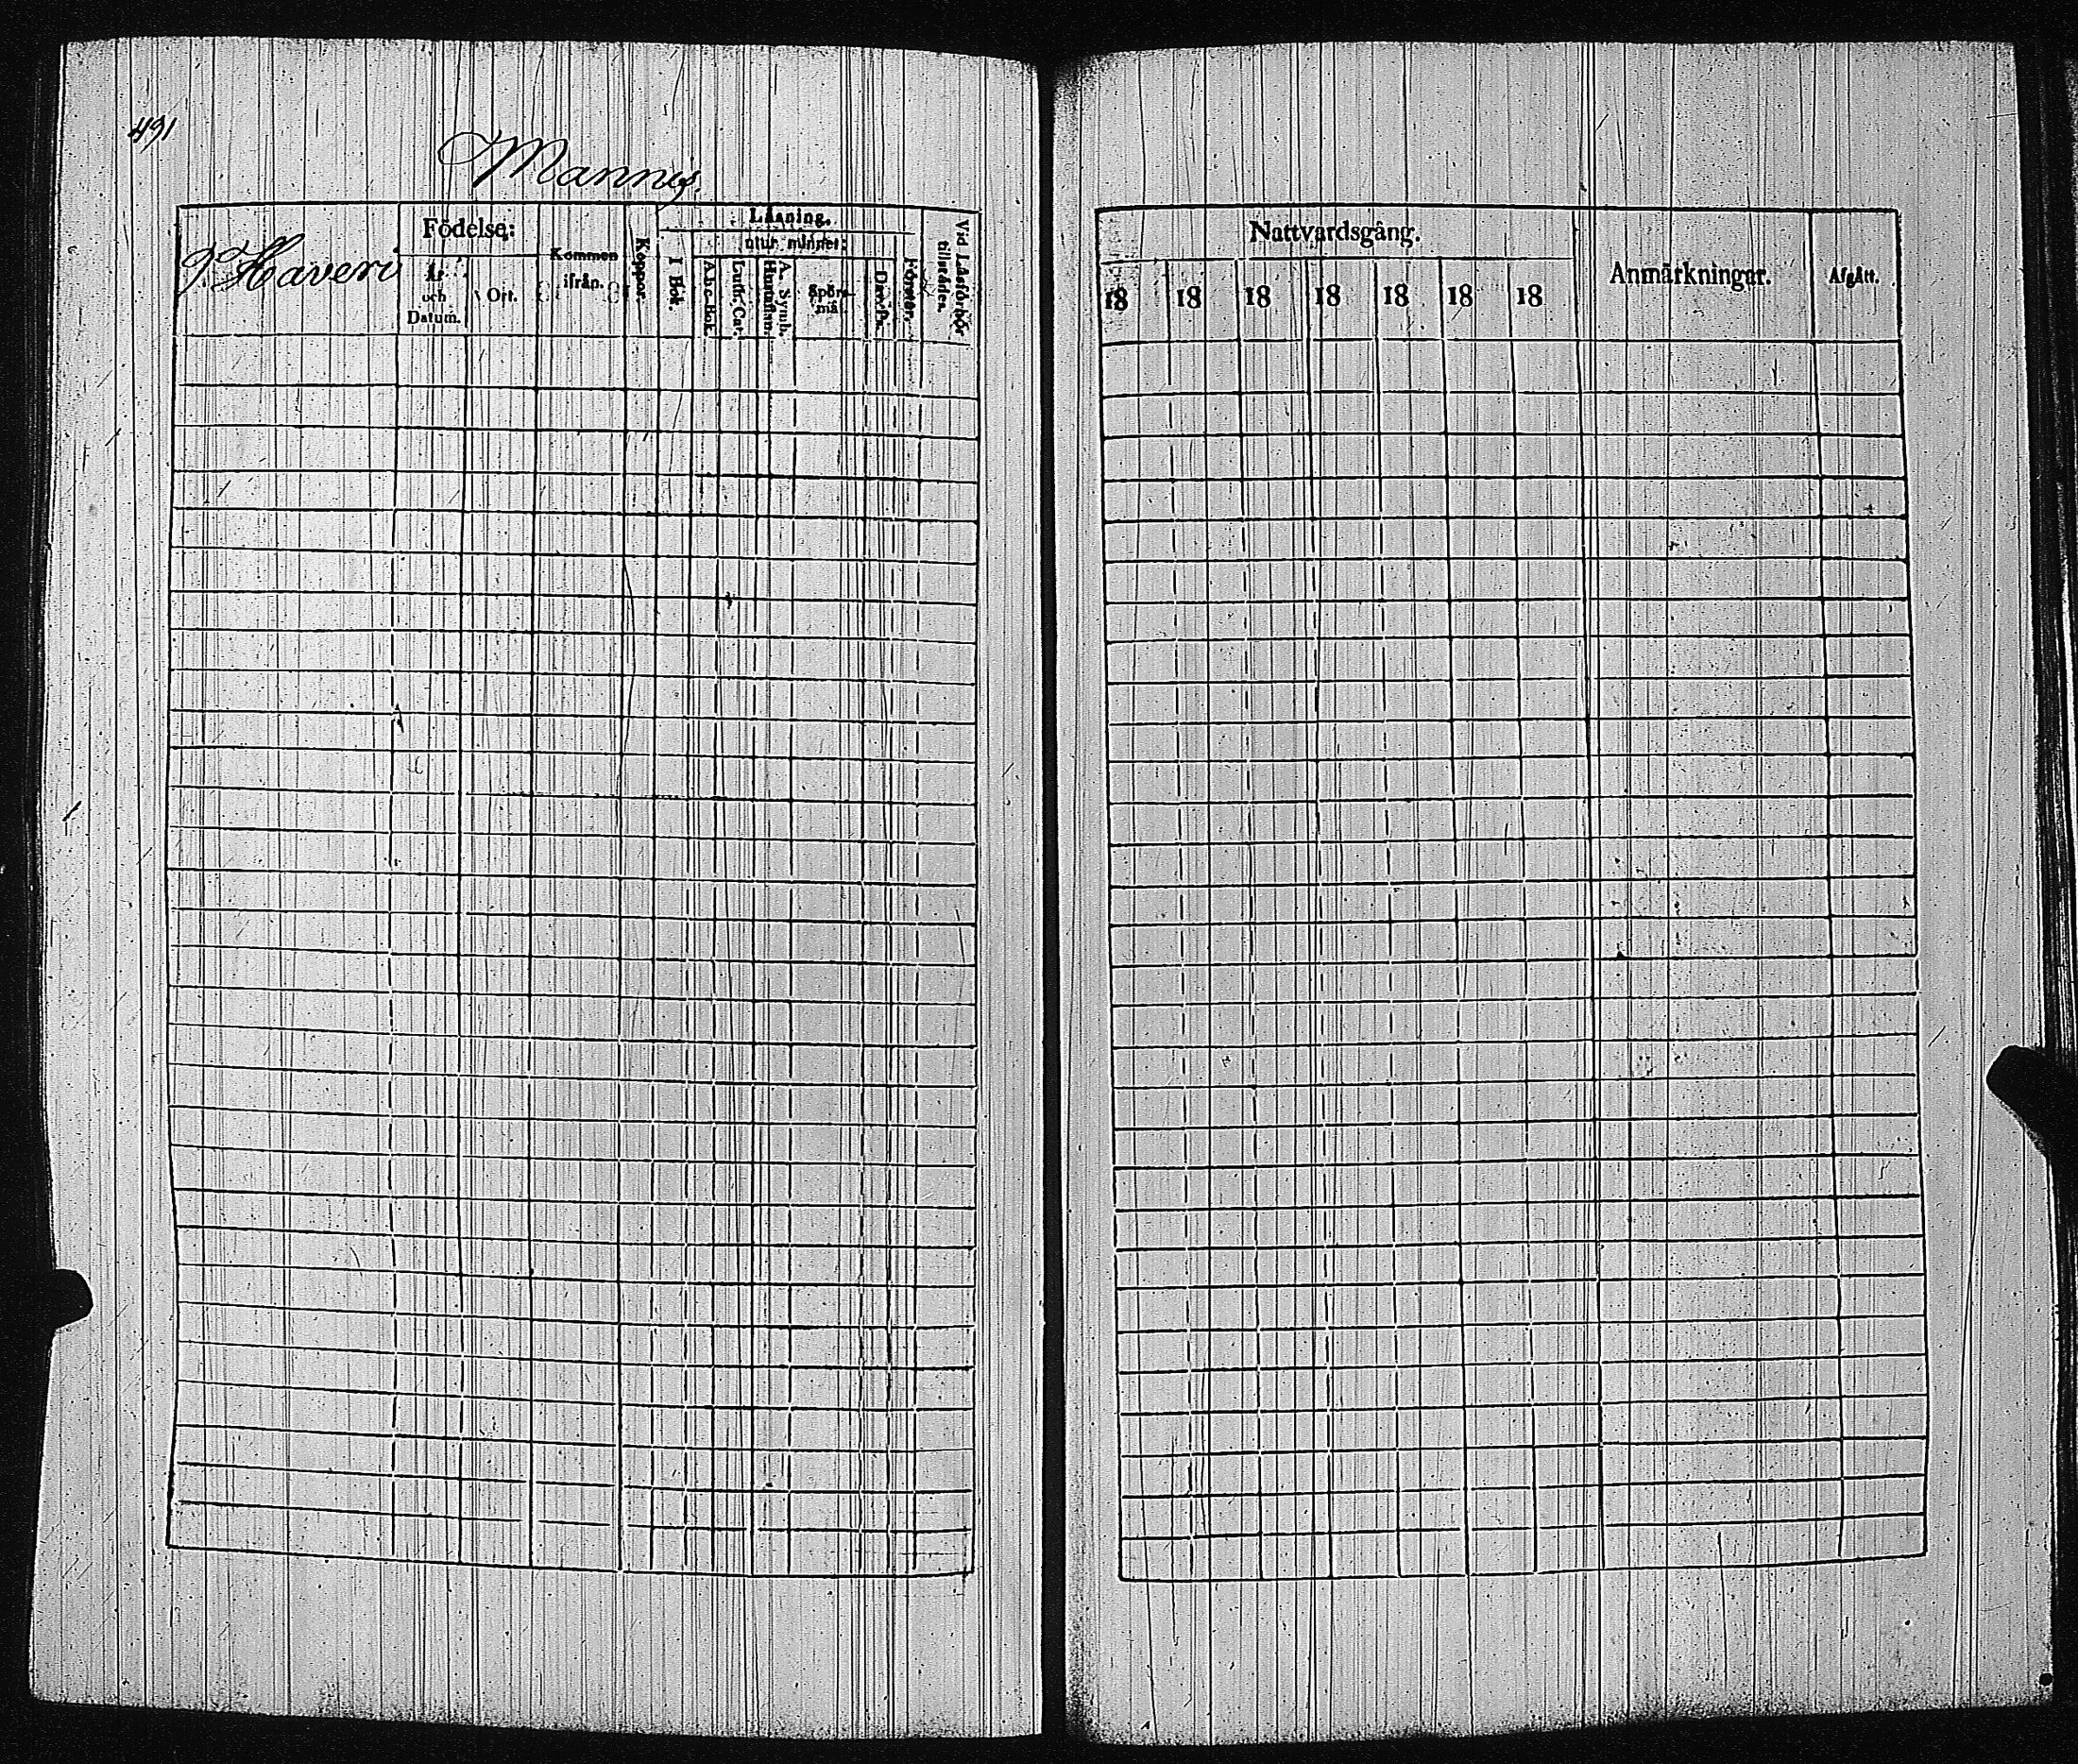 491
Mannes.
Haveri
Födelse:
År
och
Datum.
Ort.
Kommen
ifrån.
Koppor.
Läsning.
utur minnet:
I Bok.
A.b.c.Bok.
Luth. Cat.
A. Symb.
Hustaflan.
Spörs-
mål.
Dav. Ps.
Förstår.
Vid Läsförhör
tillstädes.
Nattvardsgång.
18 18 18 18 18 18 18
Anmärkningar.
Afgått.